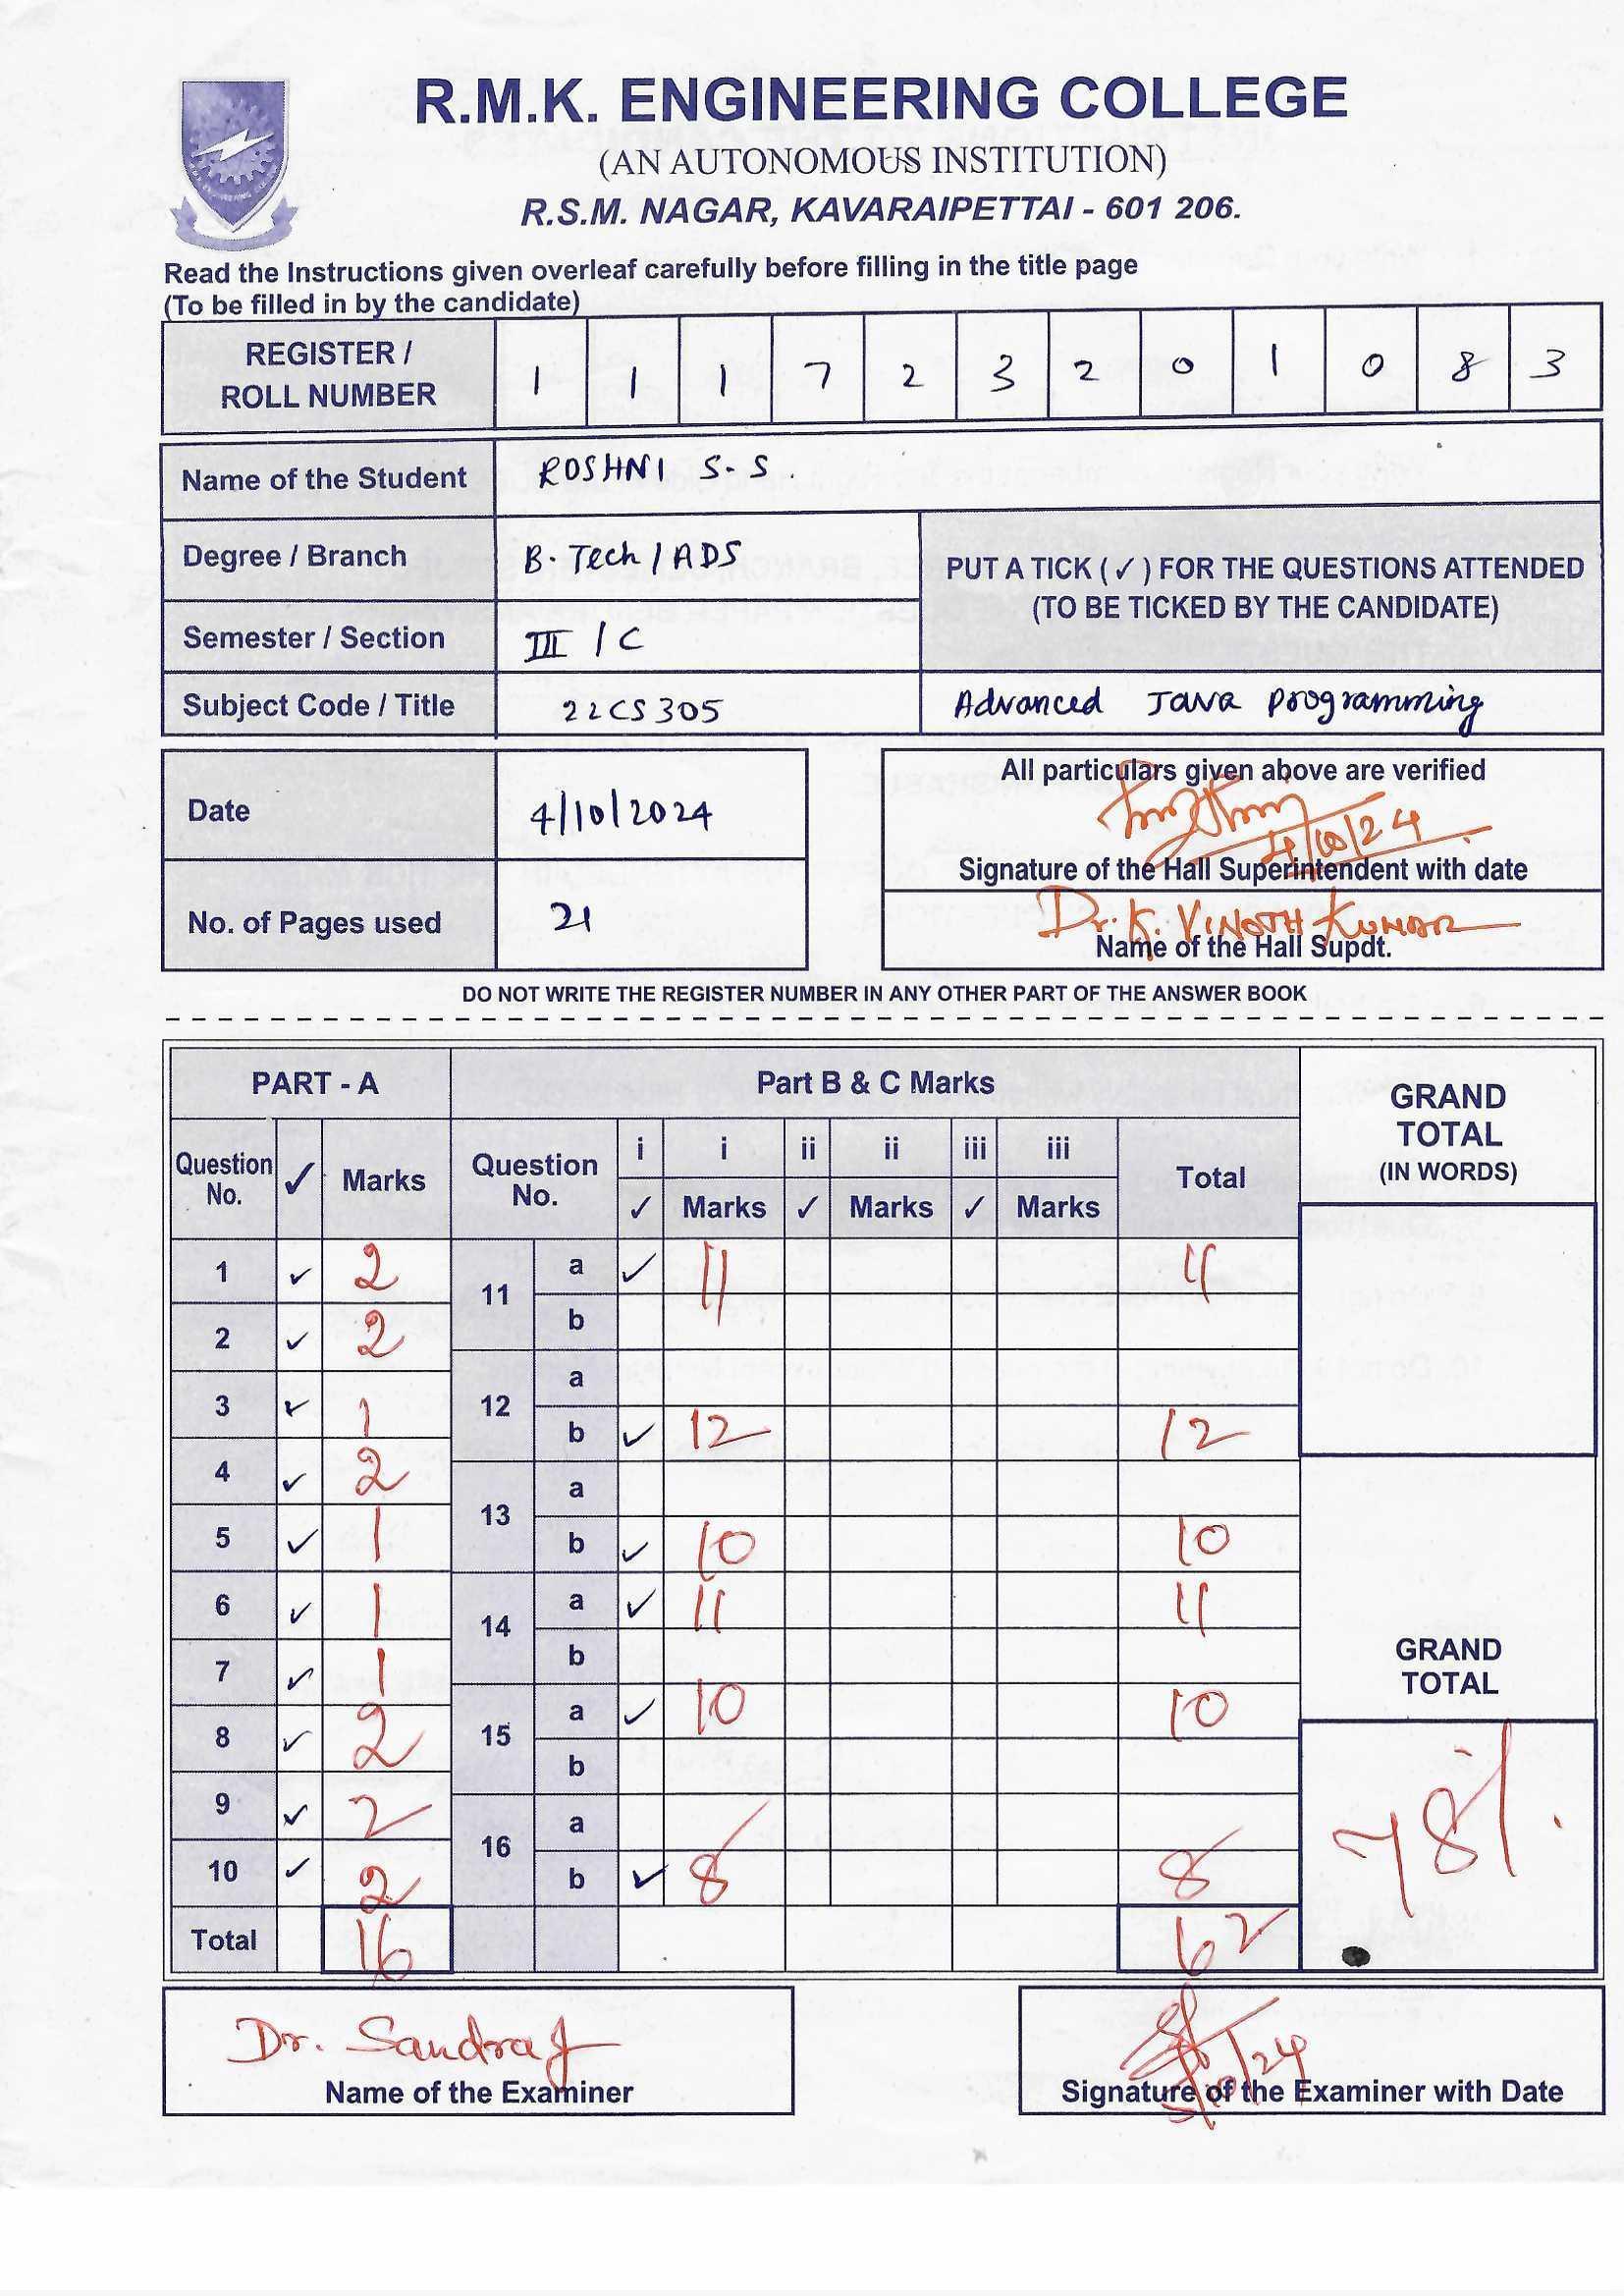 R.M.K. ENGINEERING COLLEGE
(AN AUTONOMOUS INSTITUTION)
R.S.M. NAGAR, KAVARAIPETTAI - 601 206.
Read the Instructions given overleaf carefully before filling in the title page
(To be filled in by the candidate)
REGISTER / ROLL NUMBER 1 1 1 7 2 3 2 0 1 0 8 3
Name of the Student ROSHNI S.S.
Degree / Branch B.Tech / ADS
PUT A TICK (✓) FOR THE QUESTIONS ATTENDED
(TO BE TICKED BY THE CANDIDATE)
Semester / Section III / C
Subject Code / Title 22CS305 Advanced Java Programming
Date 4/10/2024
No. of Pages used 21
All particulars given above are verified
4/10/24
Signature of the Hall Superintendent with date
Dr. K. VINOTH KUMAR
Name of the Hall Supdt.
DO NOT WRITE THE REGISTER NUMBER IN ANY OTHER PART OF THE ANSWER BOOK
PART - A Part B & C Marks GRAND TOTAL (IN WORDS)
Question No. ✓ Marks Question No. i ✓ i Marks ii ✓ ii Marks iii ✓ iii Marks Total
1 ✓ 2 11 a ✓ 11 11
2 ✓ 2 b
3 ✓ 1 12 a
4 ✓ 2 b ✓ 12 12
5 ✓ 1 13 a
b ✓ 10 10
6 ✓ 1 14 a ✓ 11 11
7 ✓ 1 b
GRAND TOTAL
8 ✓ 2 15 a ✓ 10 10
b
9 ✓ 2 16 a
10 ✓ 2 b ✓ 8 8
78
Total 16 62
Dr. Sandra J
Name of the Examiner
Signature of the Examiner with Date